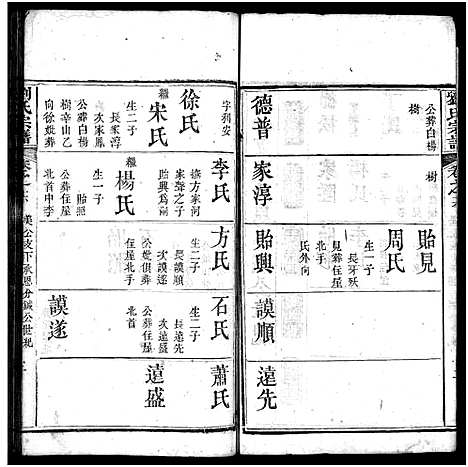 劉氏宗譜
卷之六
公葬白楊
樹
樹
德普
家淳
貽見
周氏
生一子
長牙殀
見葬住屋
北手
氏外向
貽興
謨順
遠先
字列安
徐氏
繼
宋氏
生二子
長家淳
次家鳳
公葬白楊
樹辛山乙
向徐妣葬
李氏
撫方家河
家聲之子
貽興爲嗣
繼
楊氏
生一子
貽
公葬住屋
北首申李
方氏
生二子
長謨順
次謨遂
公妣俱葬
住屋北手
謨遂
石氏
生二子
長遠先
次遠盛
公葬住屋
北首
蕭氏
遠盛
劉氏宗譜
卷之六
漢公支下承恩分鉞公世系